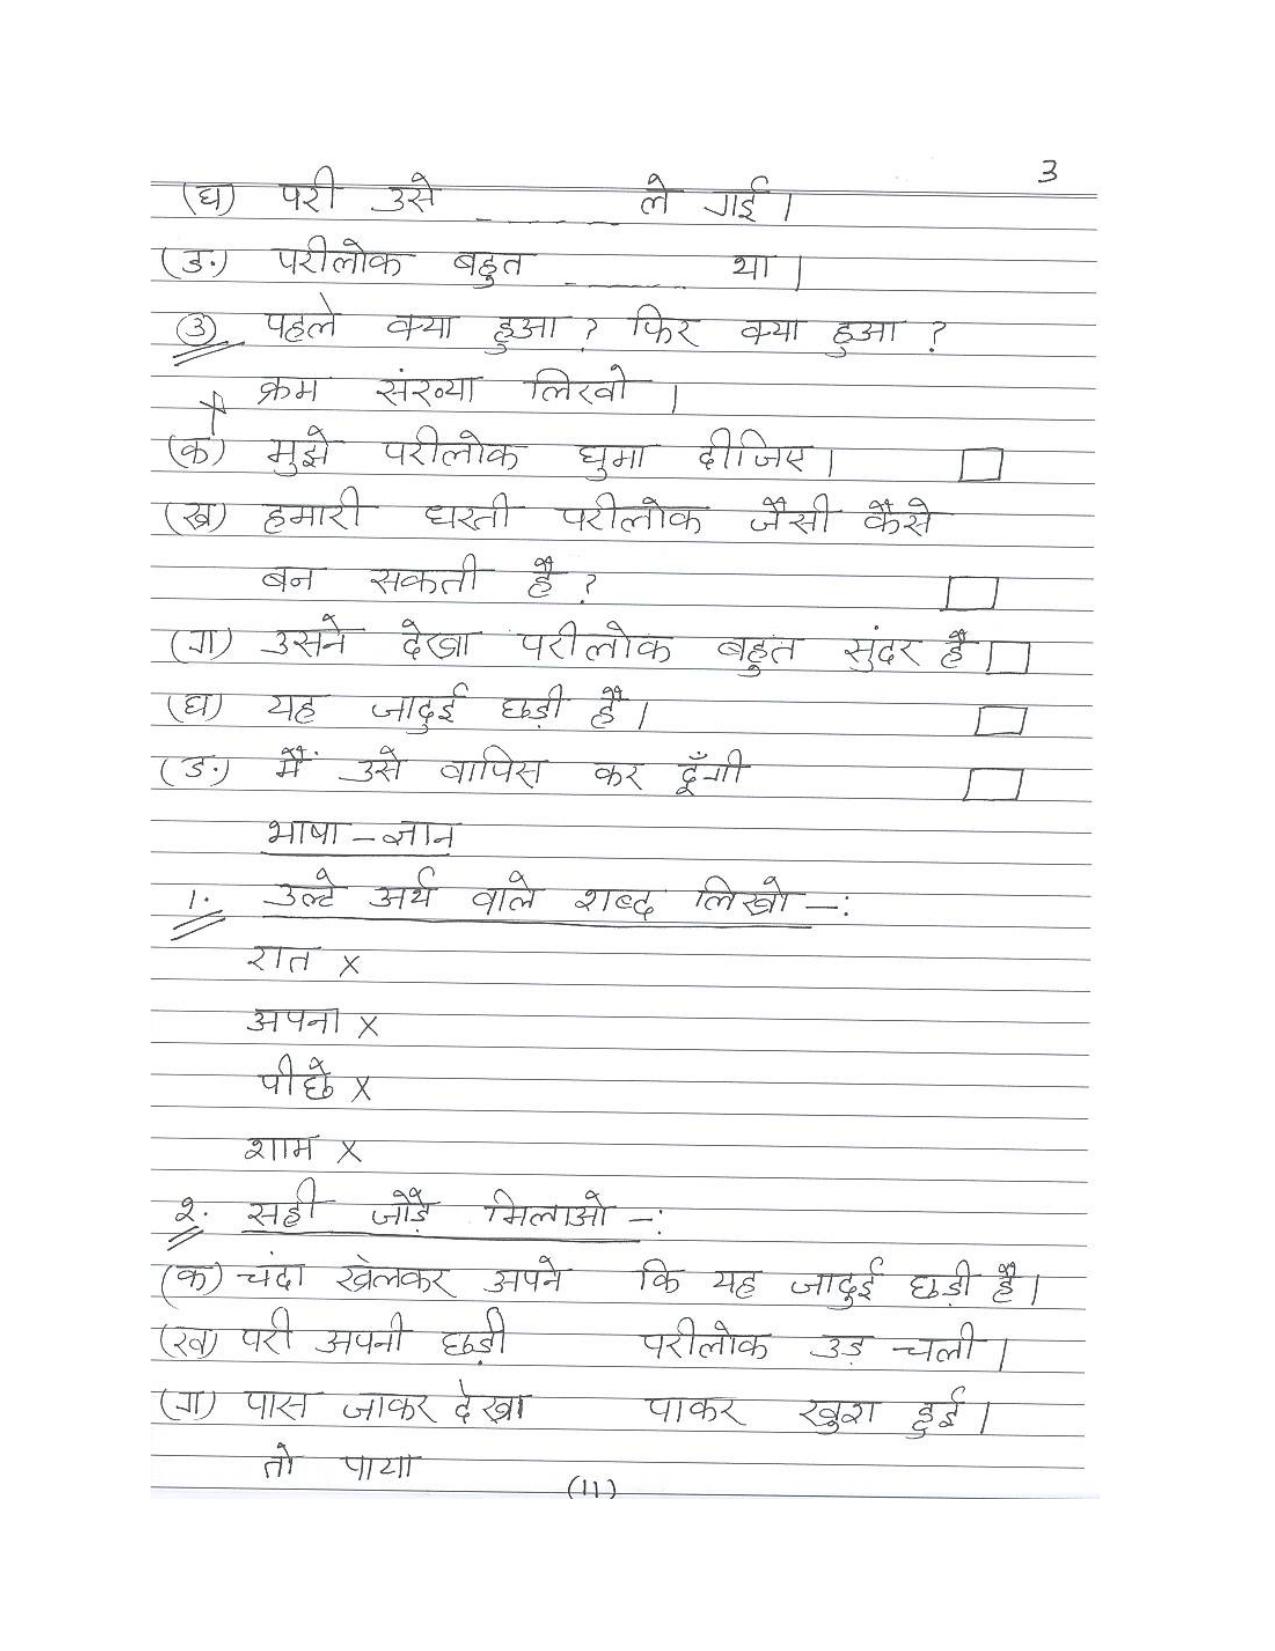 3
(घ) परी उसे ______ ले गई।
(ङ.) परीलोक बहुत ______ था।
③ पहले क्या हुआ? फिर क्या हुआ?
क्रम संख्या लिखो।
(क) मुझे परीलोक घुमा दीजिए। □
(ख) हमारी धरती परीलोक जैसी कैसे
बन सकती है? □
(ग) उसने देखा परीलोक बहुत सुंदर है □
(घ) यह जादुई छड़ी है। □
(ङ.) मैं उसे वापिस कर दूँगी □
भाषा - ज्ञान
1. उल्टे अर्थ वाले शब्द लिखो -:
रात x
अपना x
पीछे x
शाम x
२. सही जोड़ै मिलाओ -:
(क) चंदा खेलकर अपने कि यह जादुई छड़ी है।
(ख) परी अपनी छड़ी परीलोक उड़ चली।
(ग) पास जाकर देखा पाकर खुश हुई।
तो पाया
(11)